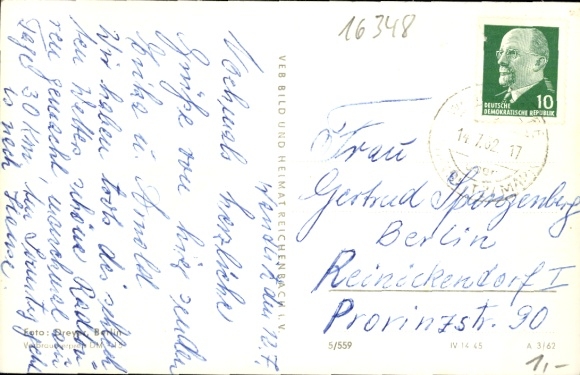 16348
den 12.7.
Nochmals herzliche
Grüße von hier senden
u. Arnold
Wir haben trotz des
ten Wetters schöne Radtou
ren gemacht, manchmal am
Tage 30 km, den Sonntag geht
is nach Hause
VEB BILD UND HEIMAT REICHENBACH I. V.
10
DEUTSCHE
DEMOKRATISCHE REPUBLIK
62-17
Frau
Gertrud Spangenberg
Berlin
Reinickendorf I
Provinzstr. 90
Foto: Dreyer, Berlin
5/559
IV 14 45
A 3/62
1,-